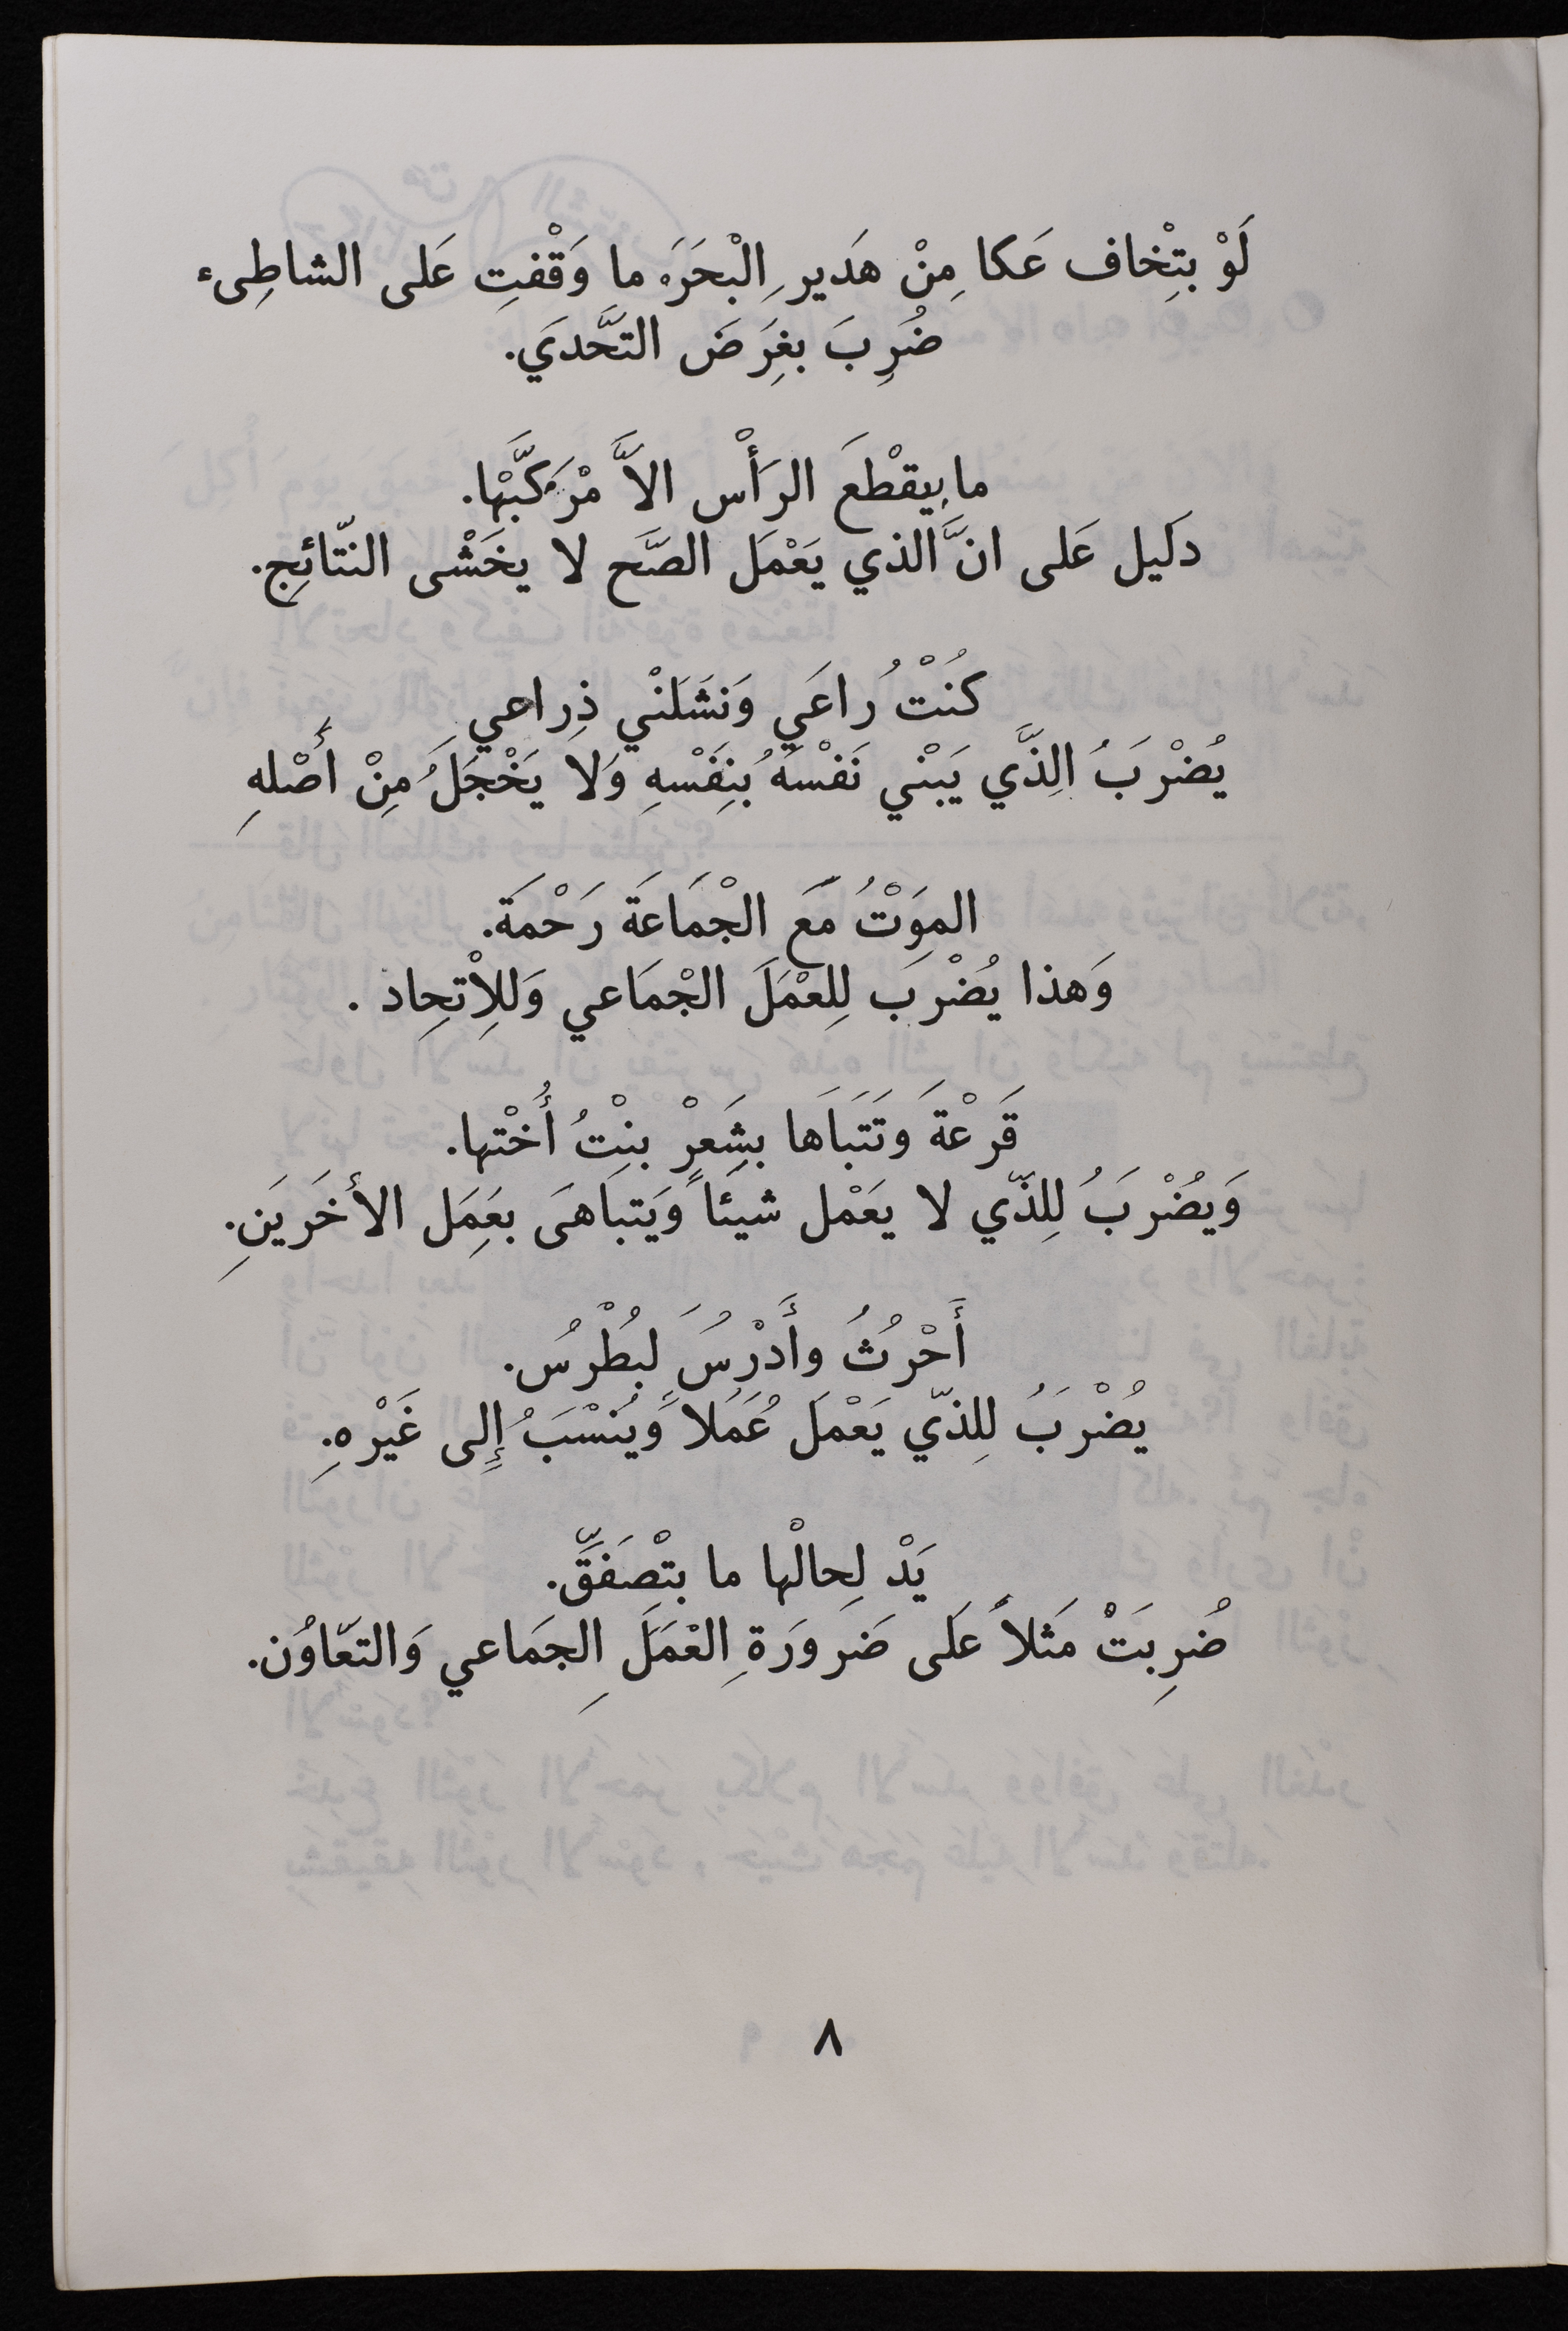 لَوْ بتِْخاف عَكا مِنْ هَديرِ الْبْحَرَ، ما وَقْفتِ عَلى الشاطِىء
ضُرِبَ بغِرَضَ التحَّديَ.
ما بِيقْطعَ الرَأْس الاَّ مْرَكَّبْها.
دَليل عَلى انَّ الذي يَعْمَل الصَّح لا يخَشْى النتّائجِ.
كنُتْ رُاعَي وَنشَلَنْي ذِراعي
يُضْرَبَُ الذِّي يَبْني نَفْسهَُ بنِفَْسْهِ وَلا يَخْجَلَُ مِنْ أَصْلهِ
الموَتُْ مَّعَ الْجْمَاعةَ رَحْمَة.
وَهذا يُضْرَبَ لِلعْمَلَ الجْمَاعي وَللِاْتحِاد .
قَرْعْةَ وَتَتَبَاهَا بشِعَرْ بنِتُْ أُخْتها.
وَيضُْرَبَُ لِلذّي لا يعَمْل شيَئاً وَيَتبَاهىَ بعَمَِل الأخَريَنِ.
أَحْرُثُ وأَدْرُسَُ لبِطُْرُس.
يُضْرَبَُ لِلذّي يَعْمَلَ عَمَُلاً وَيُنسْبَُ إِلى غَيْرْهِ.
يَدْ لِحالْها ما بتِْصَفَّقِّ.
ضُرِبَتُْ مَثلاً عَلَى ضَروَرَةِ العْمَلَِ الجَماعي وَالتعَّاوُن.
٨